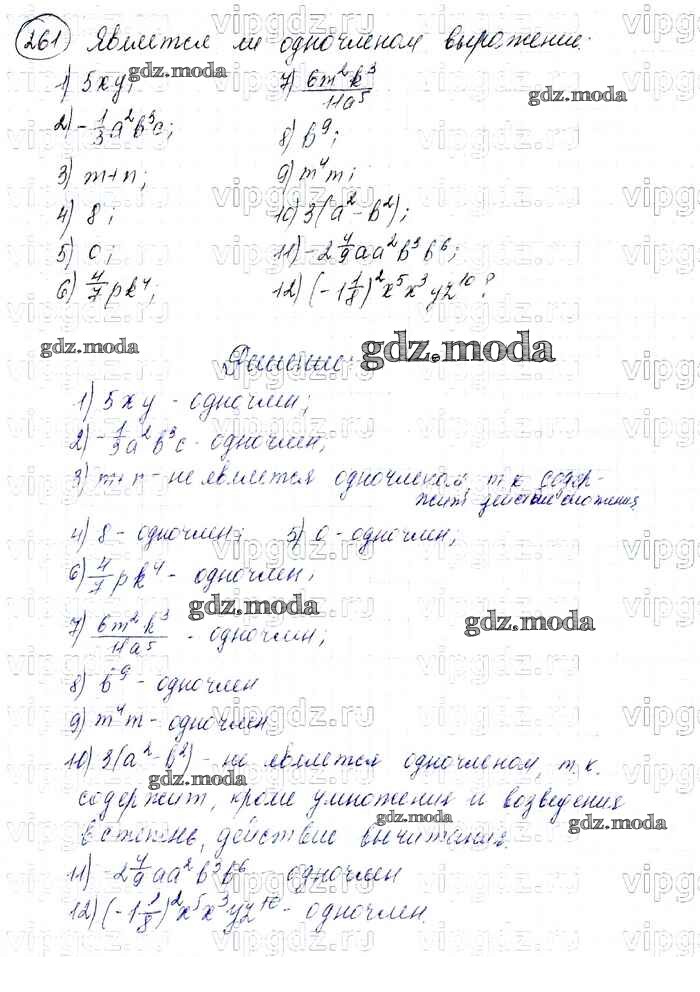 261 Является ли одночленом выражение:
1) 5xy;
2) -1/3 a²b³c;
3) m+n;
4) 8;
5) 0;
6) 4/7 pk⁴;
7) 6m²k³/11a⁵
8) b⁹;
9) m⁴m;
10) 3(a²-b²);
11) -2 4/9 aa²b³b⁶;
12) (-1 1/8)²x⁵x³yz¹⁰?
Решение:
1) 5xy - одночлен;
2) -1/3 a²b³c - одночлен;
3) m+n - не является одночленом, т.к. содер-
жит действие сложения
4) 8 - одночлен; 5) 0 - одночлен;
6) 4/7 pk⁴ - одночлен;
7) 6m²k³/11a⁵ - одночлен;
8) b⁹ - одночлен
9) m⁴m - одночлен
10) 3(a²-b²) - не является одночленом, т.к.
содержит, кроме умножения и возведения
в степень, действие вычитания.
11) -2 4/9 aa²b³b⁶ одночлен
12) (-1 1/8)²x⁵x³yz¹⁰ - одночлен.
gdz.moda
vipgdz.ru